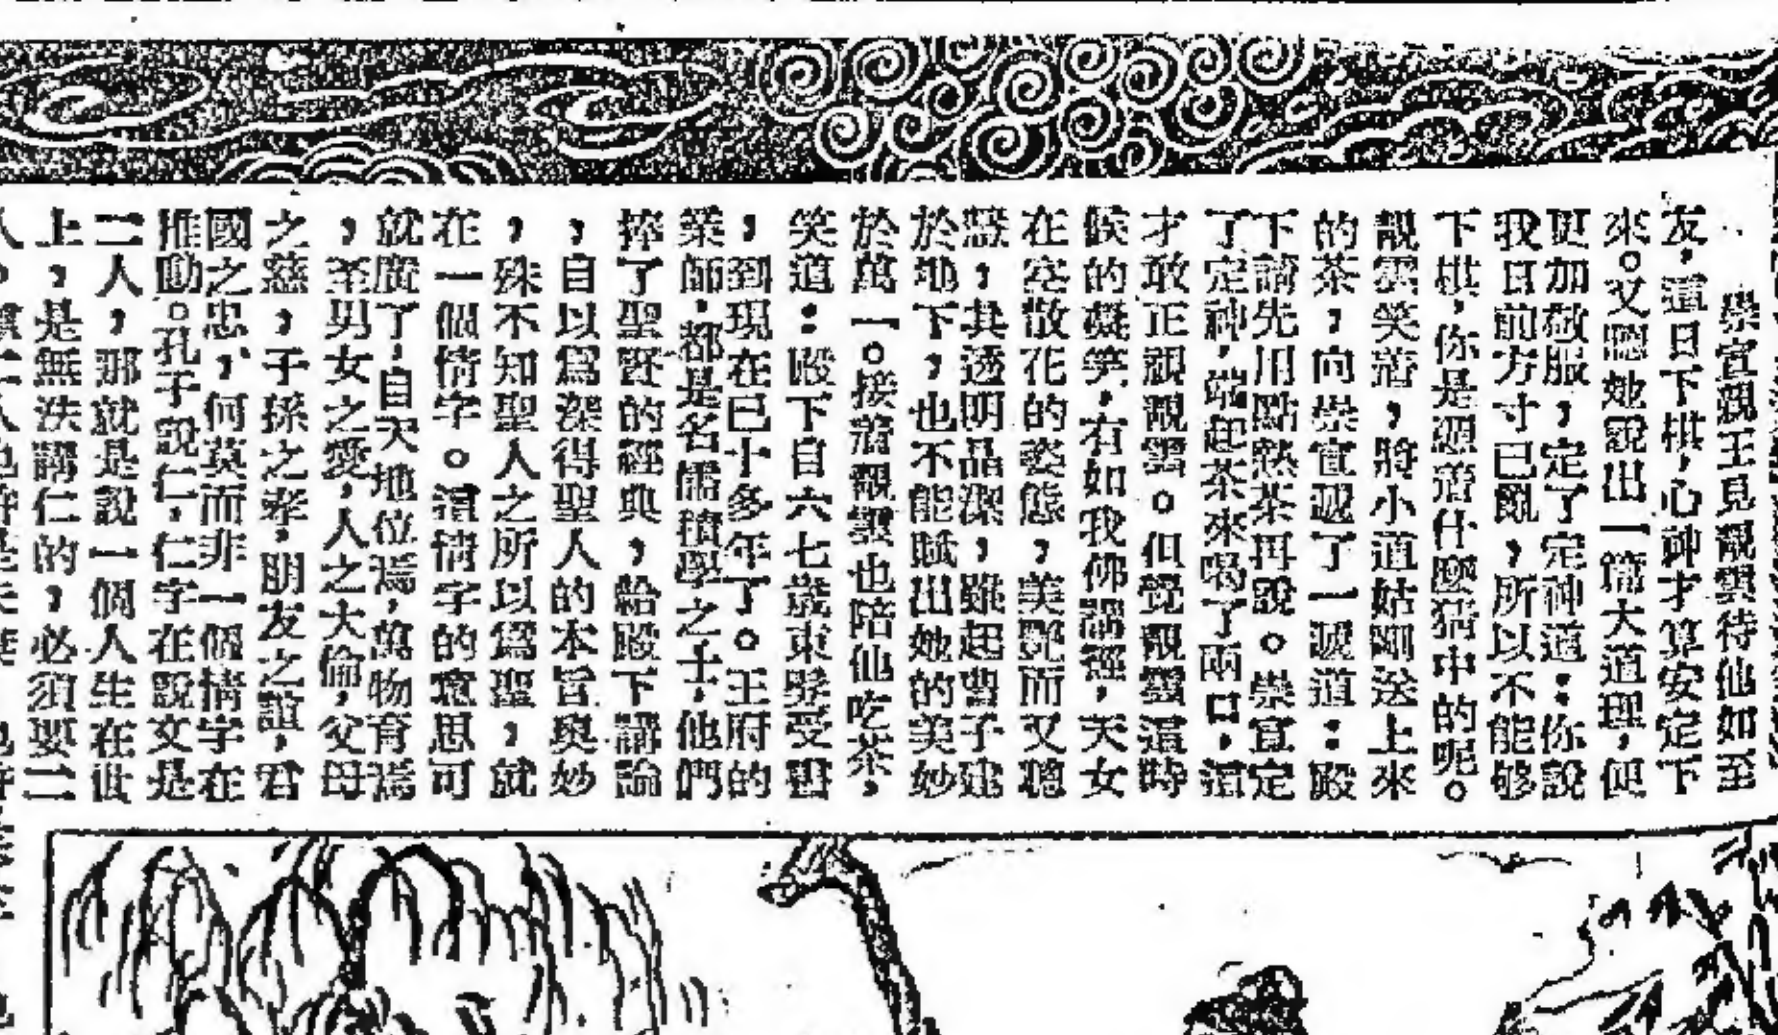 崇宣親王見靚雲待他如至
友，這日下棋，心神才算安定下
來。又聽她說出一篇大道理，便
更加敬服，定了定神道：你說
我日前方寸已亂，所以不能够
下棋，你是遁着什麼猜中的呢。
靚雲笑着，將小道姑剛送上來
的茶，向崇宣遞了一遞道：殿
下請先用點熱茶再說。崇宣定
了定神，端起茶來喝了兩口，這
才敢正視靚雲。但覺靚雲這時
候的凝笑，有如我佛謂經，天女
在空散花的姿態，美艷而又聰
慧，其透明晶潔，雖起曹子建
於地下，也不能賦出她的美妙
於萬一。接着靚雲也陪他吃茶，
笑道：殿下自六七歲束髮受書
，到現在已十多年了。王府的
業師，都是名儒積學之士，他們
捧了聖賢的經典，給殿下講論
，自以爲深得聖人的本旨奥妙
，殊不知聖人之所以爲聖，就
在一個情字。這情字的意思可
就廣了，自天地位焉，萬物育焉
，至男女之愛，人之大倫，父母
之慈，子孫之孝，朋友之誼，君
國之忠，何莫而非一個情字在
推動。孔子說仁，仁字在說文是
二人，那就是說一個人生在世
上，是無法講仁的，必須要二
人。